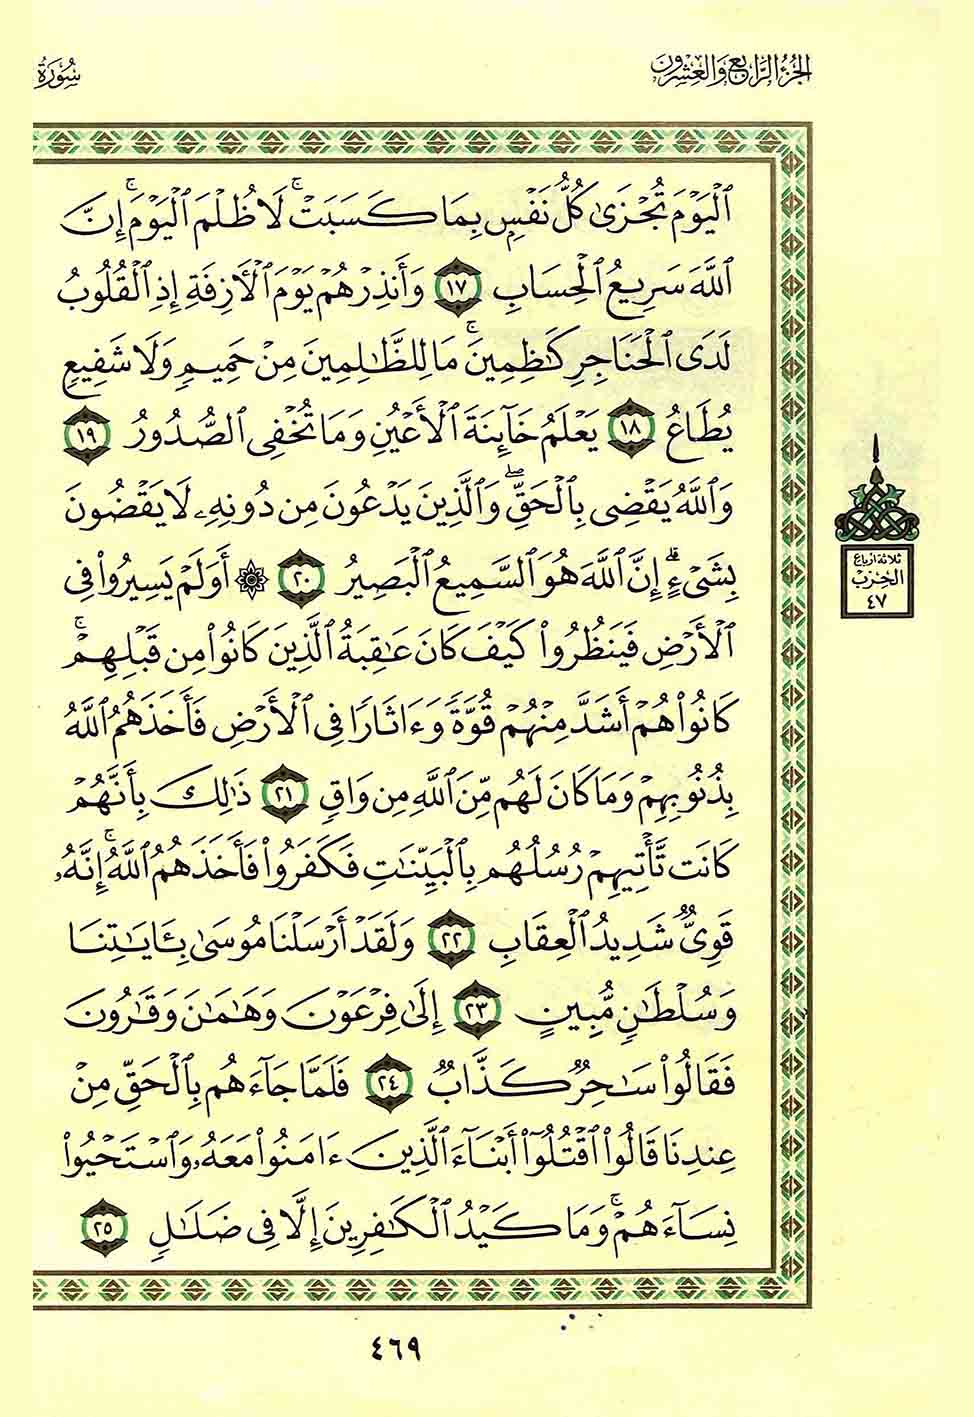 الجزء الرابع والعشرون
سورة
ٱلۡيَوۡمَ تُجۡزَىٰ كُلُّ نَفۡسِۭ بِمَا كَسَبَتۡۚ لَا ظُلۡمَ ٱلۡيَوۡمَۚ إِنَّ
ٱللَّهَ سَرِيعُ ٱلۡحِسَابِ ١٧ وَأَنذِرۡهُمۡ يَوۡمَ ٱلۡأٓزِفَةِ إِذِ ٱلۡقُلُوبُ
لَدَى ٱلۡحَنَاجِرِ كَٰظِمِينَۚ مَا لِلظَّٰلِمِينَ مِنۡ حَمِيمٖ وَلَا شَفِيعٖ
يُطَاعُ ١٨ يَعۡلَمُ خَآئِنَةَ ٱلۡأَعۡيُنِ وَمَا تُخۡفِي ٱلصُّدُورُ ١٩
وَٱللَّهُ يَقۡضِي بِٱلۡحَقِّۖ وَٱلَّذِينَ يَدۡعُونَ مِن دُونِهِۦ لَا يَقۡضُونَ
بِشَيۡءٍۗ إِنَّ ٱللَّهَ هُوَ ٱلسَّمِيعُ ٱلۡبَصِيرُ ٢٠ ۞ أَوَلَمۡ يَسِيرُواْ فِي
ٱلۡأَرۡضِ فَيَنظُرُواْ كَيۡفَ كَانَ عَٰقِبَةُ ٱلَّذِينَ كَانُواْ مِن قَبۡلِهِمۡۚ
كَانُواْ هُمۡ أَشَدَّ مِنۡهُمۡ قُوَّةٗ وَءَاثَارٗا فِي ٱلۡأَرۡضِ فَأَخَذَهُمُ ٱللَّهُ
بِذُنُوبِهِمۡ وَمَا كَانَ لَهُم مِّنَ ٱللَّهِ مِن وَاقٖ ٢١ ذَٰلِكَ بِأَنَّهُمۡ
كَانَت تَّأۡتِيهِمۡ رُسُلُهُم بِٱلۡبَيِّنَٰتِ فَكَفَرُواْ فَأَخَذَهُمُ ٱللَّهُۚ إِنَّهُۥ
قَوِيّٞ شَدِيدُ ٱلۡعِقَابِ ٢٢ وَلَقَدۡ أَرۡسَلۡنَا مُوسَىٰ بِـَٔايَٰتِنَا
وَسُلۡطَٰنٖ مُّبِينٍ ٢٣ إِلَىٰ فِرۡعَوۡنَ وَهَٰمَٰنَ وَقَٰرُونَ
فَقَالُواْ سَٰحِرٞ كَذَّابٞ ٢٤ فَلَمَّا جَآءَهُم بِٱلۡحَقِّ مِنۡ
عِندِنَا قَالُواْ ٱقۡتُلُوٓاْ أَبۡنَآءَ ٱلَّذِينَ ءَامَنُواْ مَعَهُۥ وَٱسۡتَحۡيُواْ
نِسَآءَهُمۡۚ وَمَا كَيۡدُ ٱلۡكَٰفِرِينَ إِلَّا فِي ضَلَٰلٖ ٢٥
ثلاثة أرباع
الحزب
٤٧
٤٦٩